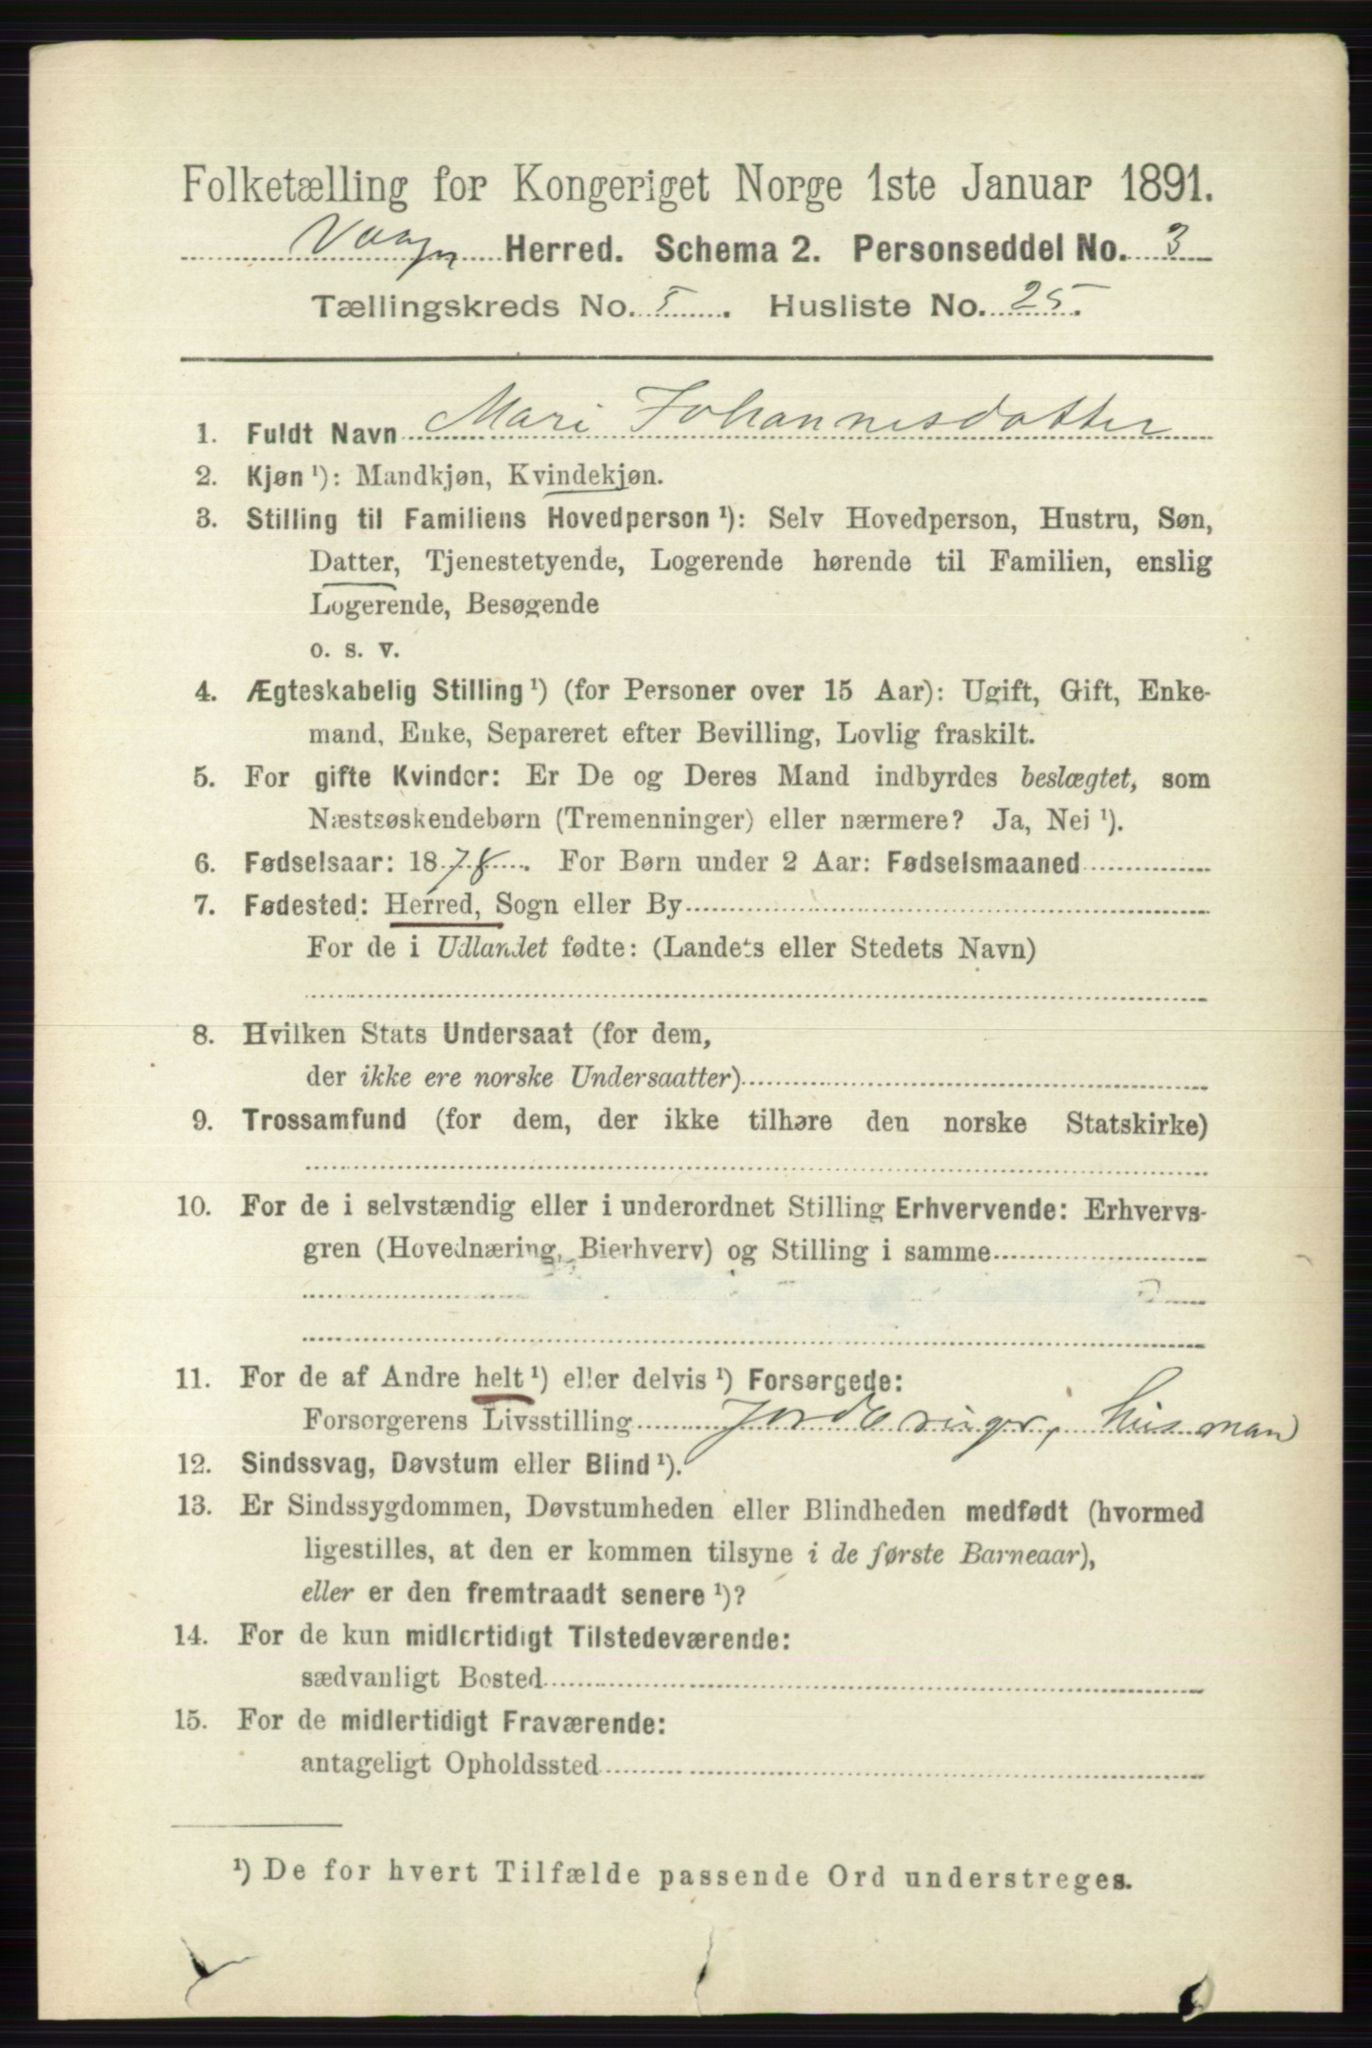 Folketælling for Kongeriget Norge 1ste Januar 1891.
Vaage Herred. Schema 2. Personseddel No. 3
Tællingskreds No. 5. Husliste No. 25.
1. Fuldt Navn Mari Johannesdatter
2. Kjøn ¹): Mandkjøn, Kvindekjøn.
3. Stilling til Familiens Hovedperson ¹): Selv Hovedperson, Hustru, Søn,
Datter, Tjenestetyende, Logerende hørende til Familien, enslig
Logerende, Besøgende
o. s. v.
4. Ægteskabelig Stilling ¹) (for Personer over 15 Aar): Ugift, Gift, Enke-
mand, Enke, Separeret efter Bevilling, Lovlig fraskilt.
5. For gifte Kvinder: Er De og Deres Mand indbyrdes beslægtet, som
Næstsøskendebørn (Tremenninger) eller nærmere? Ja, Nei ¹).
6. Fødselsaar: 1878. For Børn under 2 Aar: Fødselsmaaned
7. Fødested: Herred, Sogn eller By
For de i Udlandet fødte: (Landets eller Stedets Navn)
8. Hvilken Stats Undersaat (for dem,
der ikke ere norske Undersaatter)
9. Trossamfund (for dem, der ikke tilhøre den norske Statskirke)
10. For de i selvstændig eller i underordnet Stilling Erhvervende: Erhvervs-
gren (Hovednæring, Bierhverv) og Stilling i samme
11. For de af Andre helt ¹) eller delvis ¹) Forsørgede:
Forsørgerens Livsstilling Jordbruger, husmand
12. Sindssvag, Døvstum eller Blind ¹).
13. Er Sindssygdommen, Døvstumheden eller Blindheden medfødt (hvormed
ligestilles, at den er kommen tilsyne i de første Barneaar),
eller er den fremtraadt senere ¹)?
14. For de kun midlertidigt Tilstedeværende:
sædvanligt Bosted
15. For de midlertidigt Fraværende:
antageligt Opholdssted
¹) De for hvert Tilfælde passende Ord understreges.